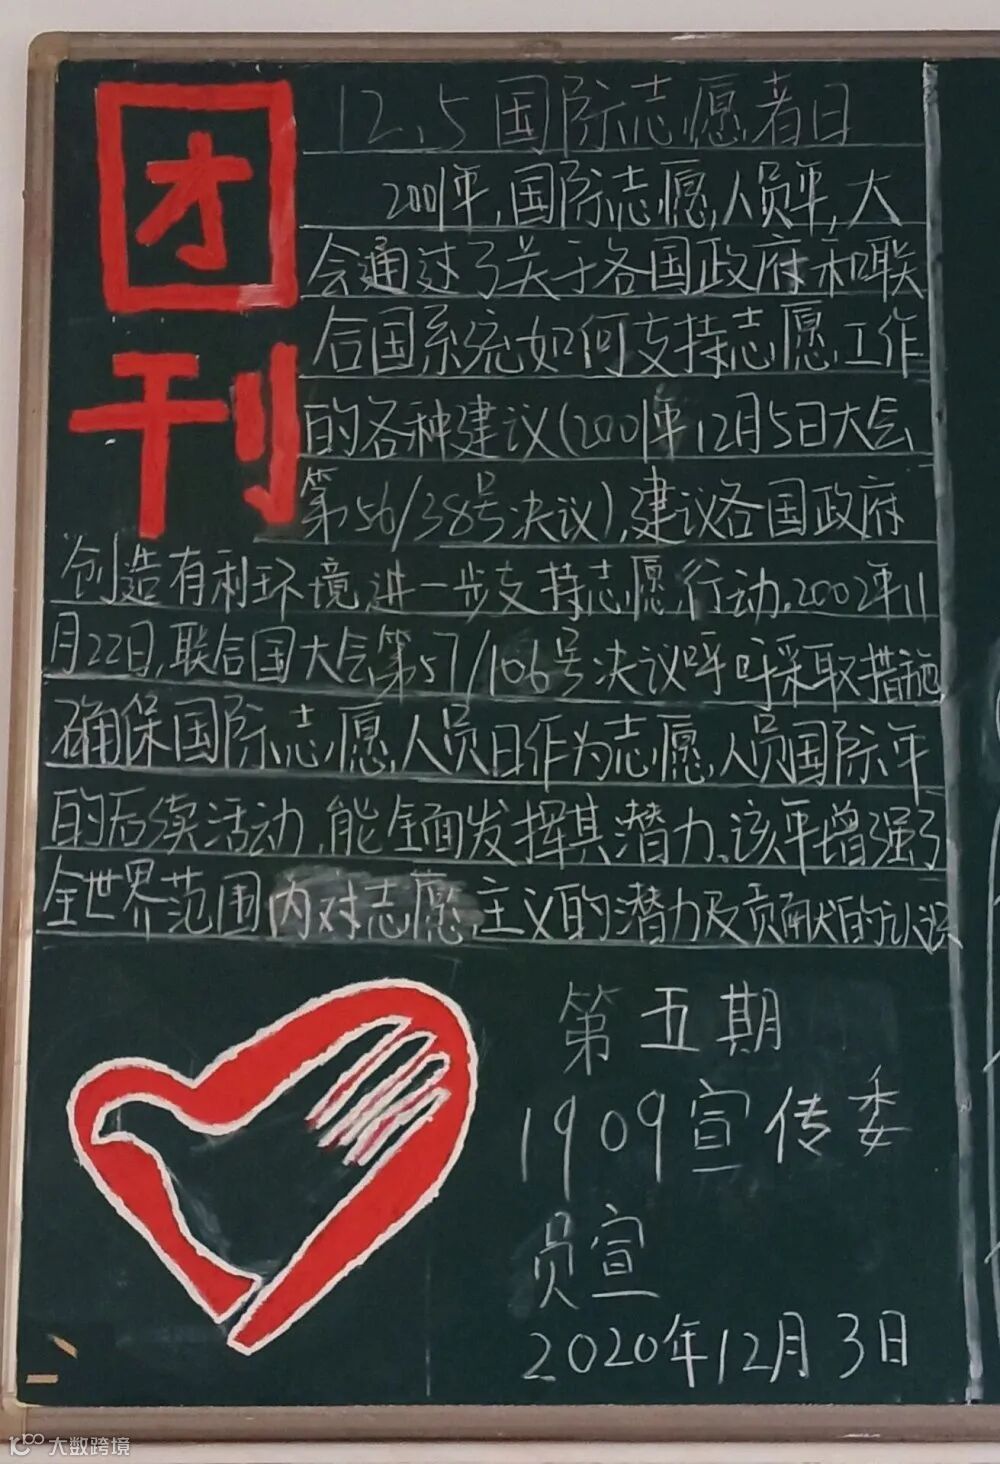 团刊
12.5国际志愿者日
2001年,国际志愿人员年,大
会通过了关于各国政府和联
合国系统如何支持志愿工作
的各种建议(2001年12月5日大会
第56/38号决议),建议各国政府
创造有利环境进一步支持志愿行动.2002年11
月22日,联合国大会第57/106号决议呼吁采取措施
确保国际志愿人员日作为志愿人员国际年
的后续活动,能全面发挥其潜力。该年增强了
全世界范围内对志愿主义的潜力及贡献的认识
第五期
1909宣传委
员宣
2020年12月3日
大数跨境